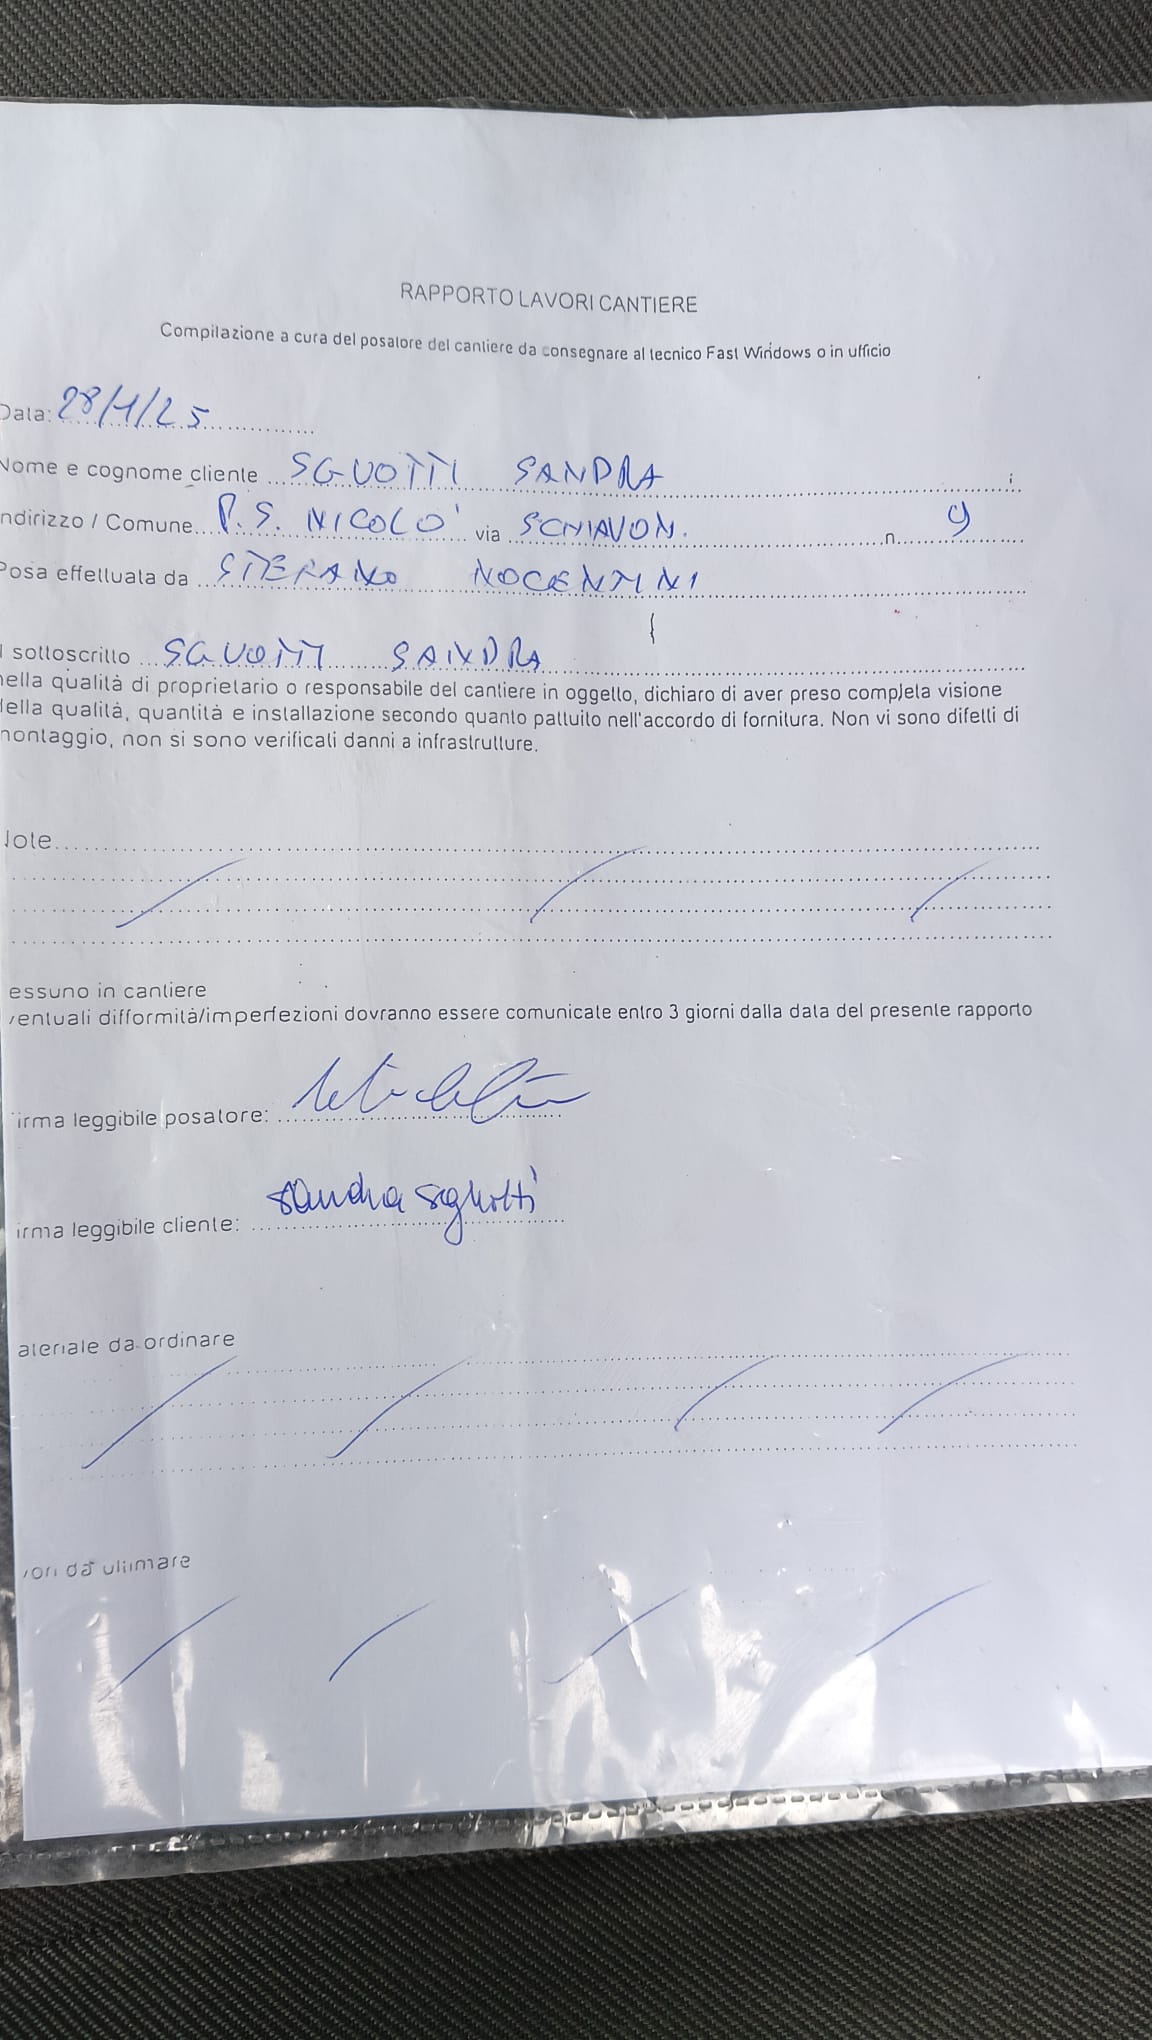 RAPPORTO LAVORI CANTIERE
Compilazione a cura del posatore del cantiere da consegnare al tecnico Fast Windows o in ufficio
Data: 28/1/25
Nome e cognome cliente SGUOTTI SANDRA
ndirizzo / Comune P.S. NICOLO' via SCHIAVON. n. 9
Posa effettuata da STEFANO NOCENTINI
l sottoscritto SGUOTTI SANDRA
nella qualità di proprietario o responsabile del cantiere in oggetto, dichiaro di aver preso completa visione
della qualità, quantità e installazione secondo quanto pattuito nell'accordo di fornitura. Non vi sono difetti di
montaggio, non si sono verificati danni a infrastrutture.
Note
essuno in cantiere
ventuali difformità/imperfezioni dovranno essere comunicate entro 3 giorni dalla data del presente rapporto
irma leggibile posatore:
irma leggibile cliente: Sandra Sguotti
ateriale da ordinare
vori da ultimare